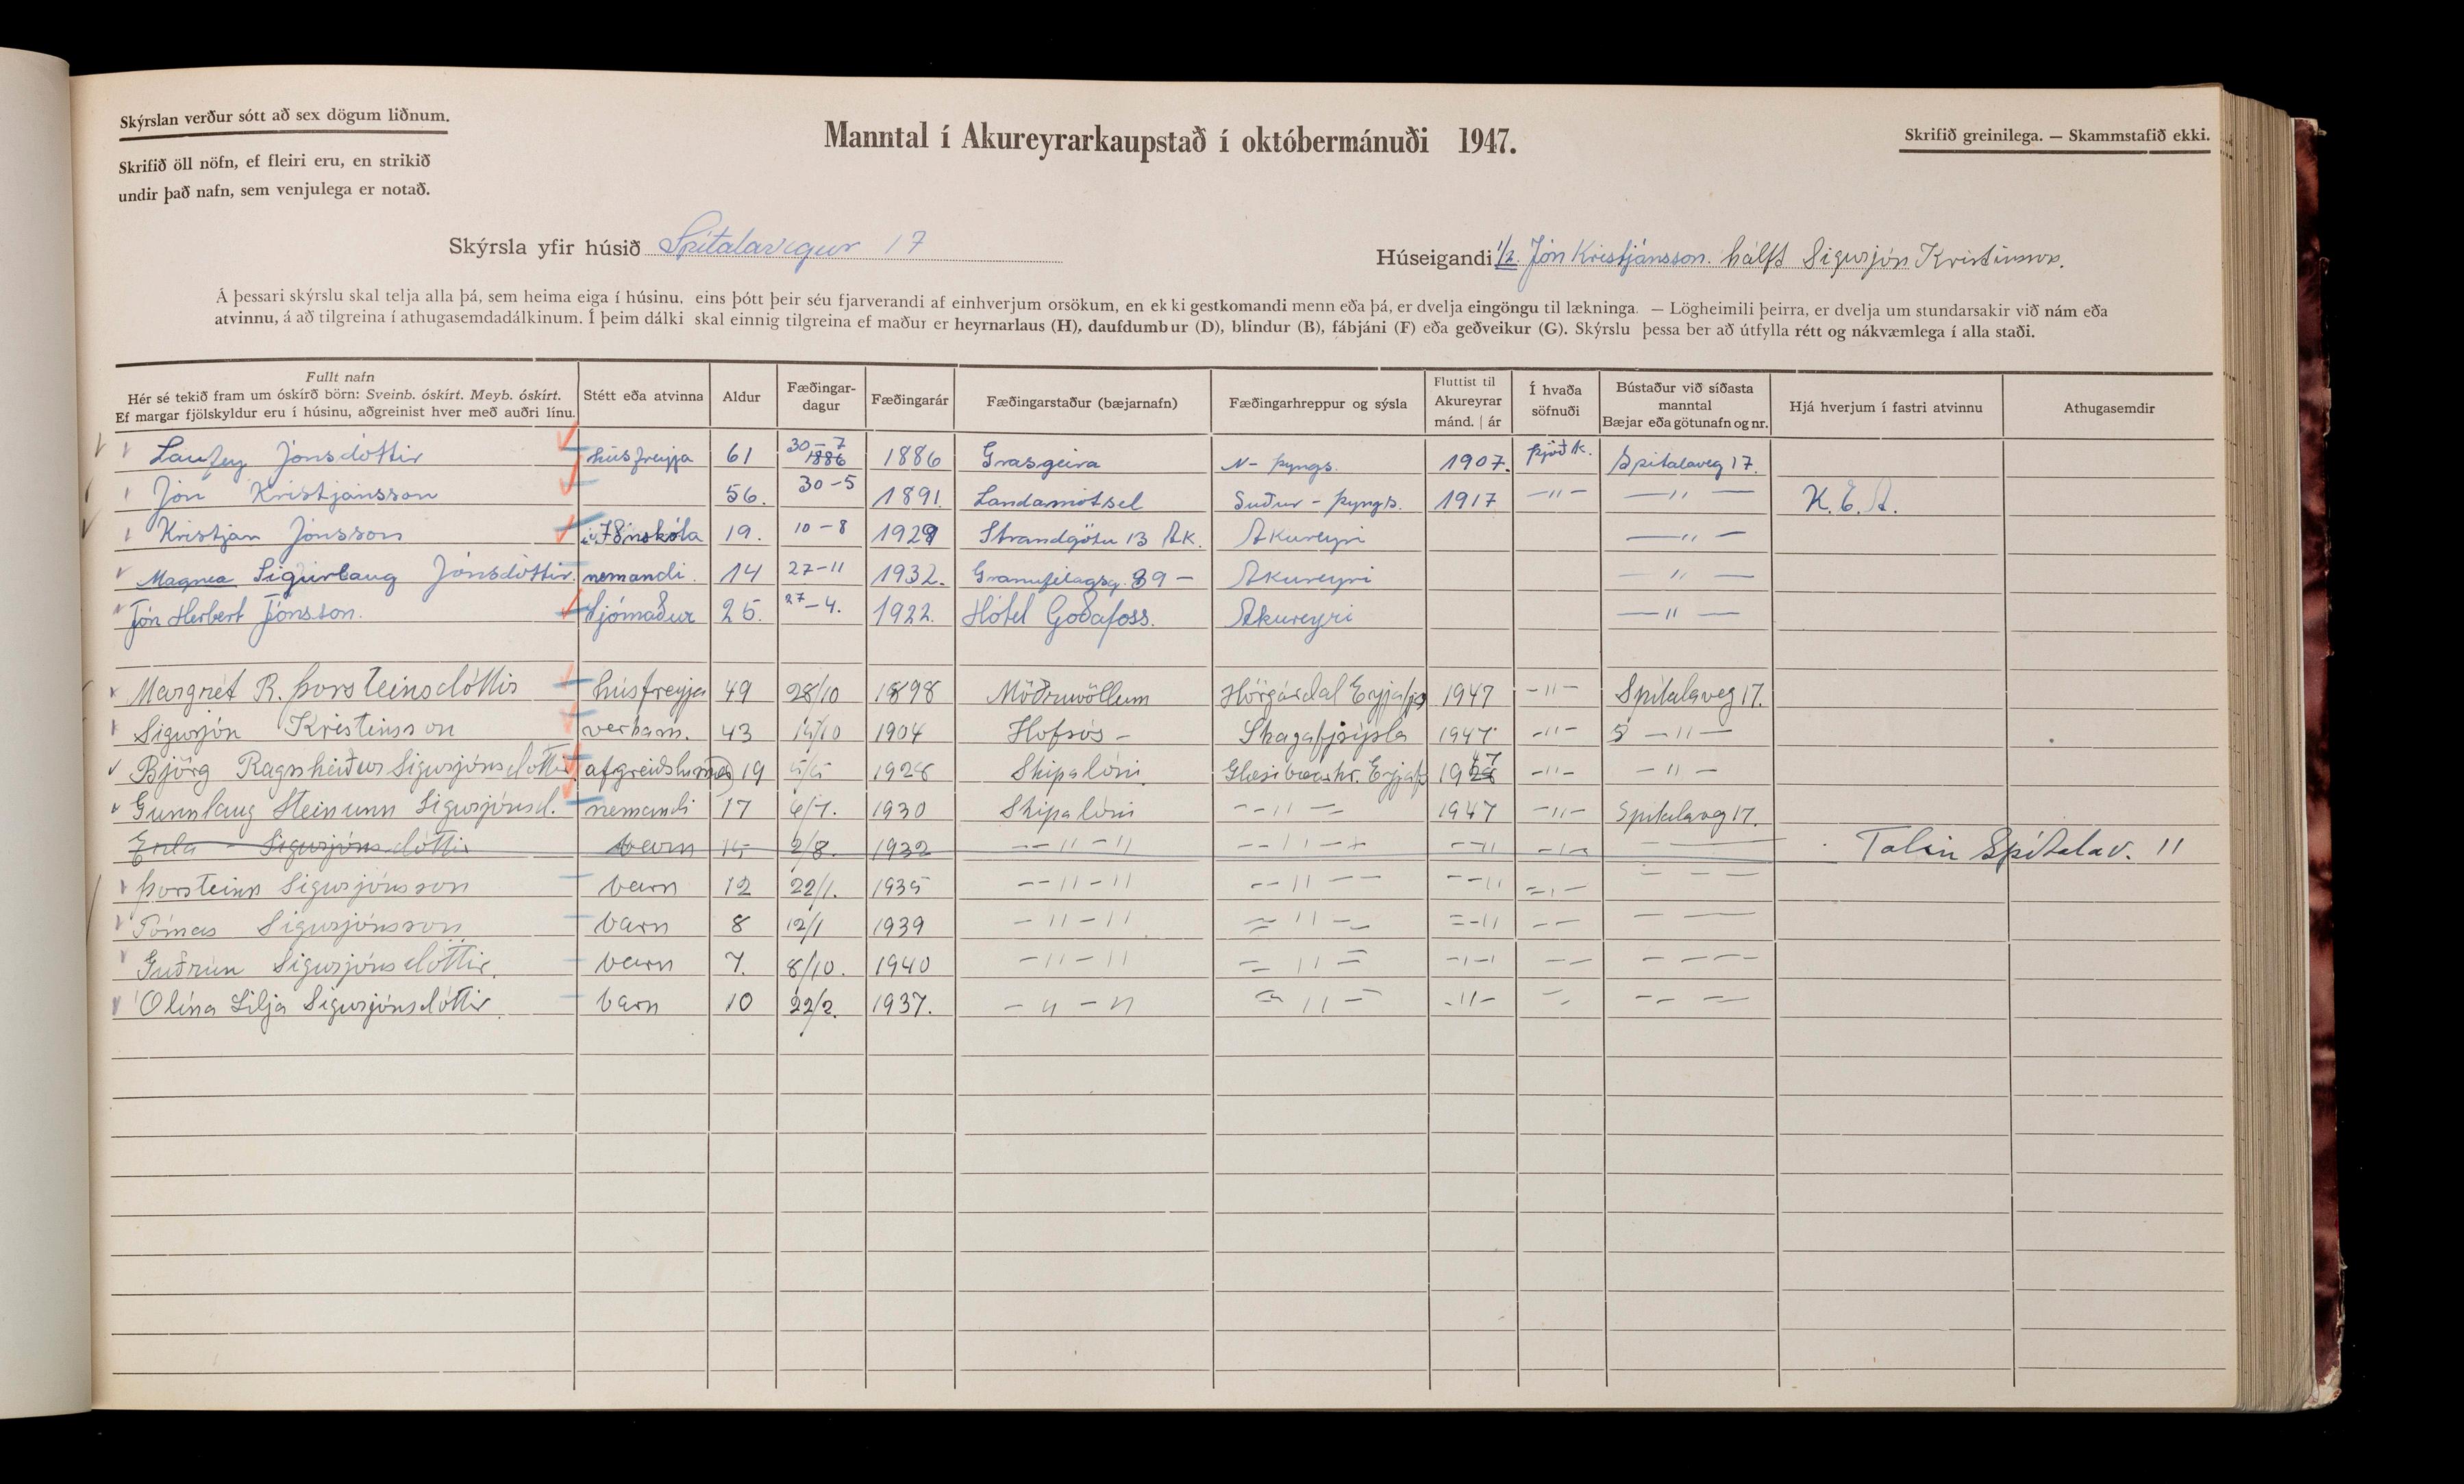 Skýrslan verður sótt að sex dögum liðnum.
Skrifið öll nöfn, ef fleiri eru, en strikið
undir það nafn, sem venjulega er notað.
Manntal í Akureyrarkaupstað í októbermánuði 1947.
Skrifið greinilega. — Skammstafið ekki.
Skýrsla yfir húsið Spítalavegur 17
Húseigandi 1/2. Jón Kristjánsson. hálft Sigurjón Kristinsson.
Á þessari skýrslu skal telja alla þá, sem heima eiga í húsinu, eins þótt þeir séu fjarverandi af einhverjum orsökum, en ekki gestkomandi menn eða þá, er dvelja eingöngu til lækninga. — Lögheimili þeirra, er dvelja um stundarsakir við nám eða
atvinnu, á að tilgreina í athugasemdadálkinum. Í þeim dálki skal einnig tilgreina ef maður er heyrnarlaus (H), daufdumbur (D), blindur (B), fábjáni (F) eða geðveikur (G). Skýrslu þessa ber að útfylla rétt og nákvæmlega í alla staði.
Fullt nafn
Hér sé tekið fram um óskírð börn: Sveinb. óskírt. Meyb. óskírt.
Ef margar fjölskyldur eru í húsinu, aðgreinist hver með auðri línu.
Stétt eða atvinna
Aldur
Fæðingar-
dagur
Fæðingarár
Fæðingarstaður (bæjarnafn)
Fæðingarhreppur og sýsla
Fluttist til
Akureyrar
mánd. | ár
Í hvaða
söfnuði
Bústaður við síðasta
manntal
Bæjar eða götunafn og nr.
Hjá hverjum í fastri atvinnu
Athugasemdir
Laufey Jónsdóttir húsfreyja 61 30-7 1886 1886 Grasgeira N-þyngs. 1907. þjóðk. Spítalaveg 17.
Jón Kristjánsson 56. 30-5 1891. Landamótsel Suður-þyngs. 1917 —"— —"— K.E.A.
Kristján Jónsson í Iðnskóla 19. 10-8 1929 Strandgötu 13 Ak. Akureyri —"—
Magnea Sigurlaug Jónsdóttir. nemandi. 14 27-11 1932. Granufélagsg. 39 — Akureyri —"—
Jón Herbert Jónsson. Sjómaður 25. 27-4. 1922. Hótel Goðafoss. Akureyri —"—
Margrét R. Þorsteinsdóttir húsfreyja 49 28/10 1898 Möðruvöllum Hörgárdal Eyjafj 1947 —"— Spítalaveg 17.
Sigurjón Kristinsson verkam. 43 14/10 1904 Hofsós — Skagafjsýsla 1947 —"— S —"—
Björg Ragnheiður Sigurjónsdóttir afgreiðslumær 19 5/5 1928 Skipalóni Glæsibæjarhr. Eyjafj 1947 —"— —"—
Gunnlaug Steinunn Sigurjónsd. nemandi 17 6/7. 1930 Skipalóni —"— 1947 —"— Spítalaveg 17.
Erla Sigurjónsdóttir barn 15 2/8. 1932 —"—" —"— —" —"— — Talin Spítalav. 11
Þorsteinn Sigurjónsson barn 12 22/1. 1935 —"—" —"— —" —"— — —
Tómas Sigurjónsson barn 8 12/1 1939 —"—" —"— —" — — — —
Guðrún Sigurjónsdóttir. barn 7. 8/10. 1940 —"—" —"— —"— — — — —
Ólína Lilja Sigurjónsdóttir barn 10 22/2. 1937. —"—" —"— —"— — — — —